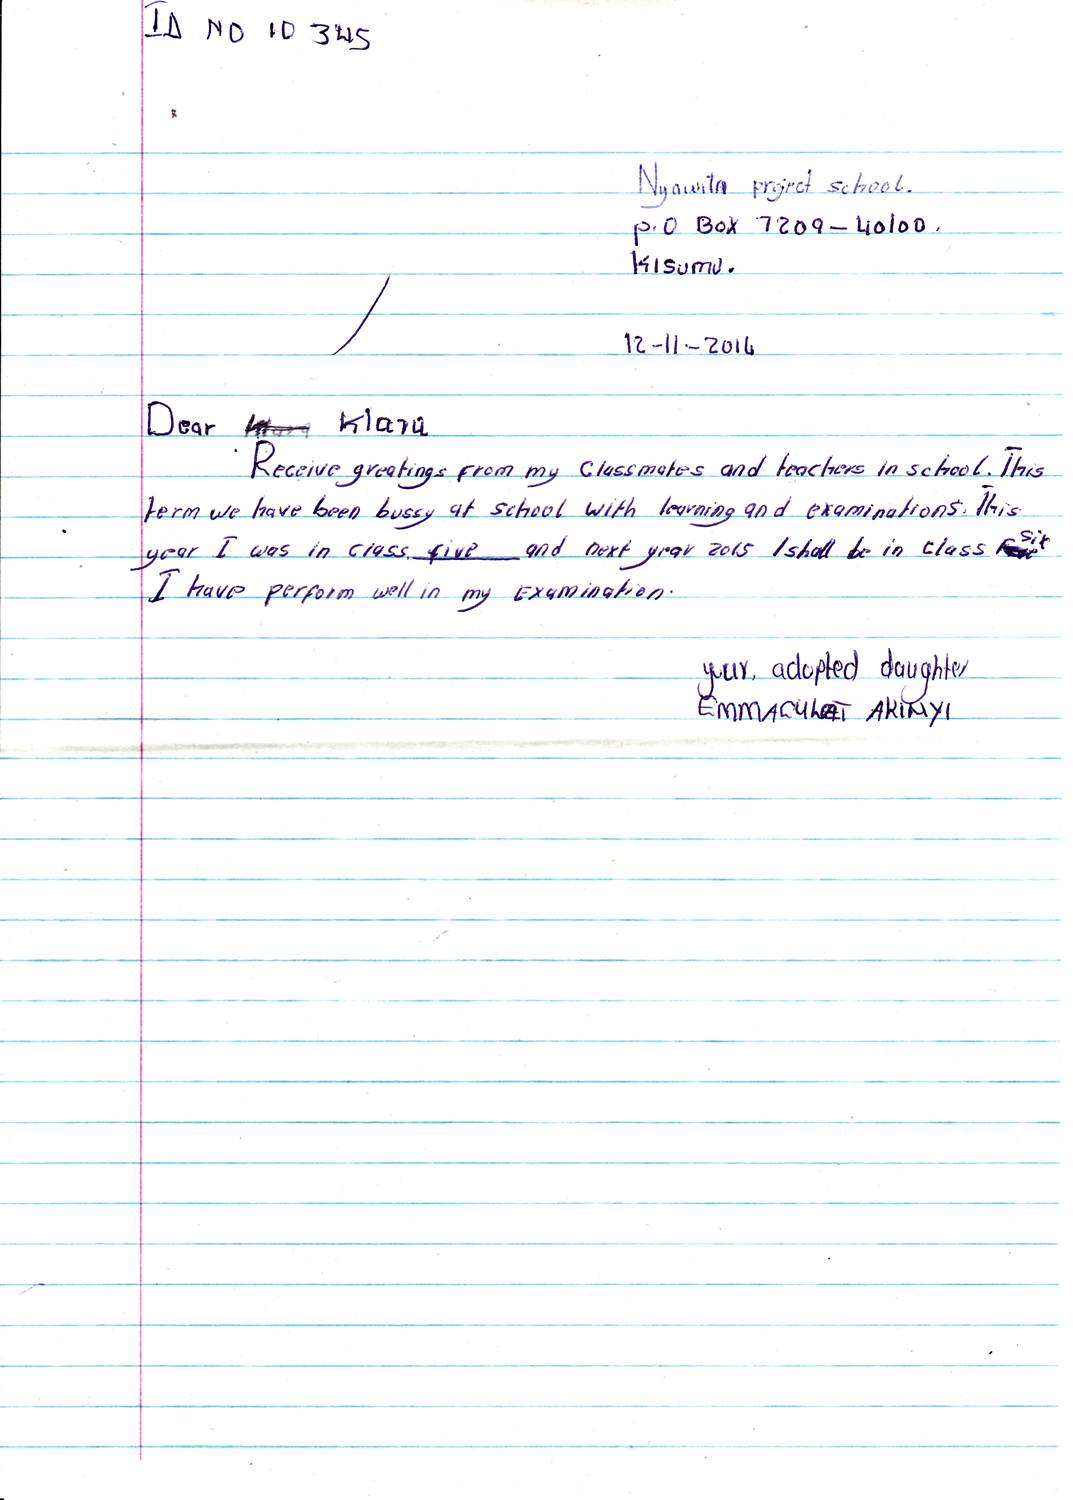 ID NO 10 345
Nyawita project school.
P.O Box 7209-40100.
Kisumu.
12-11-2014
Dear Klara
Receive greatings from my classmates and teachers in school. This
term we have been bussy at school with learning and examinations. This
year I was in class five and next year 2015 I shall be in class six
I have perform well in my Examination.
your, adopted daughter
EMMACULET AKINYI